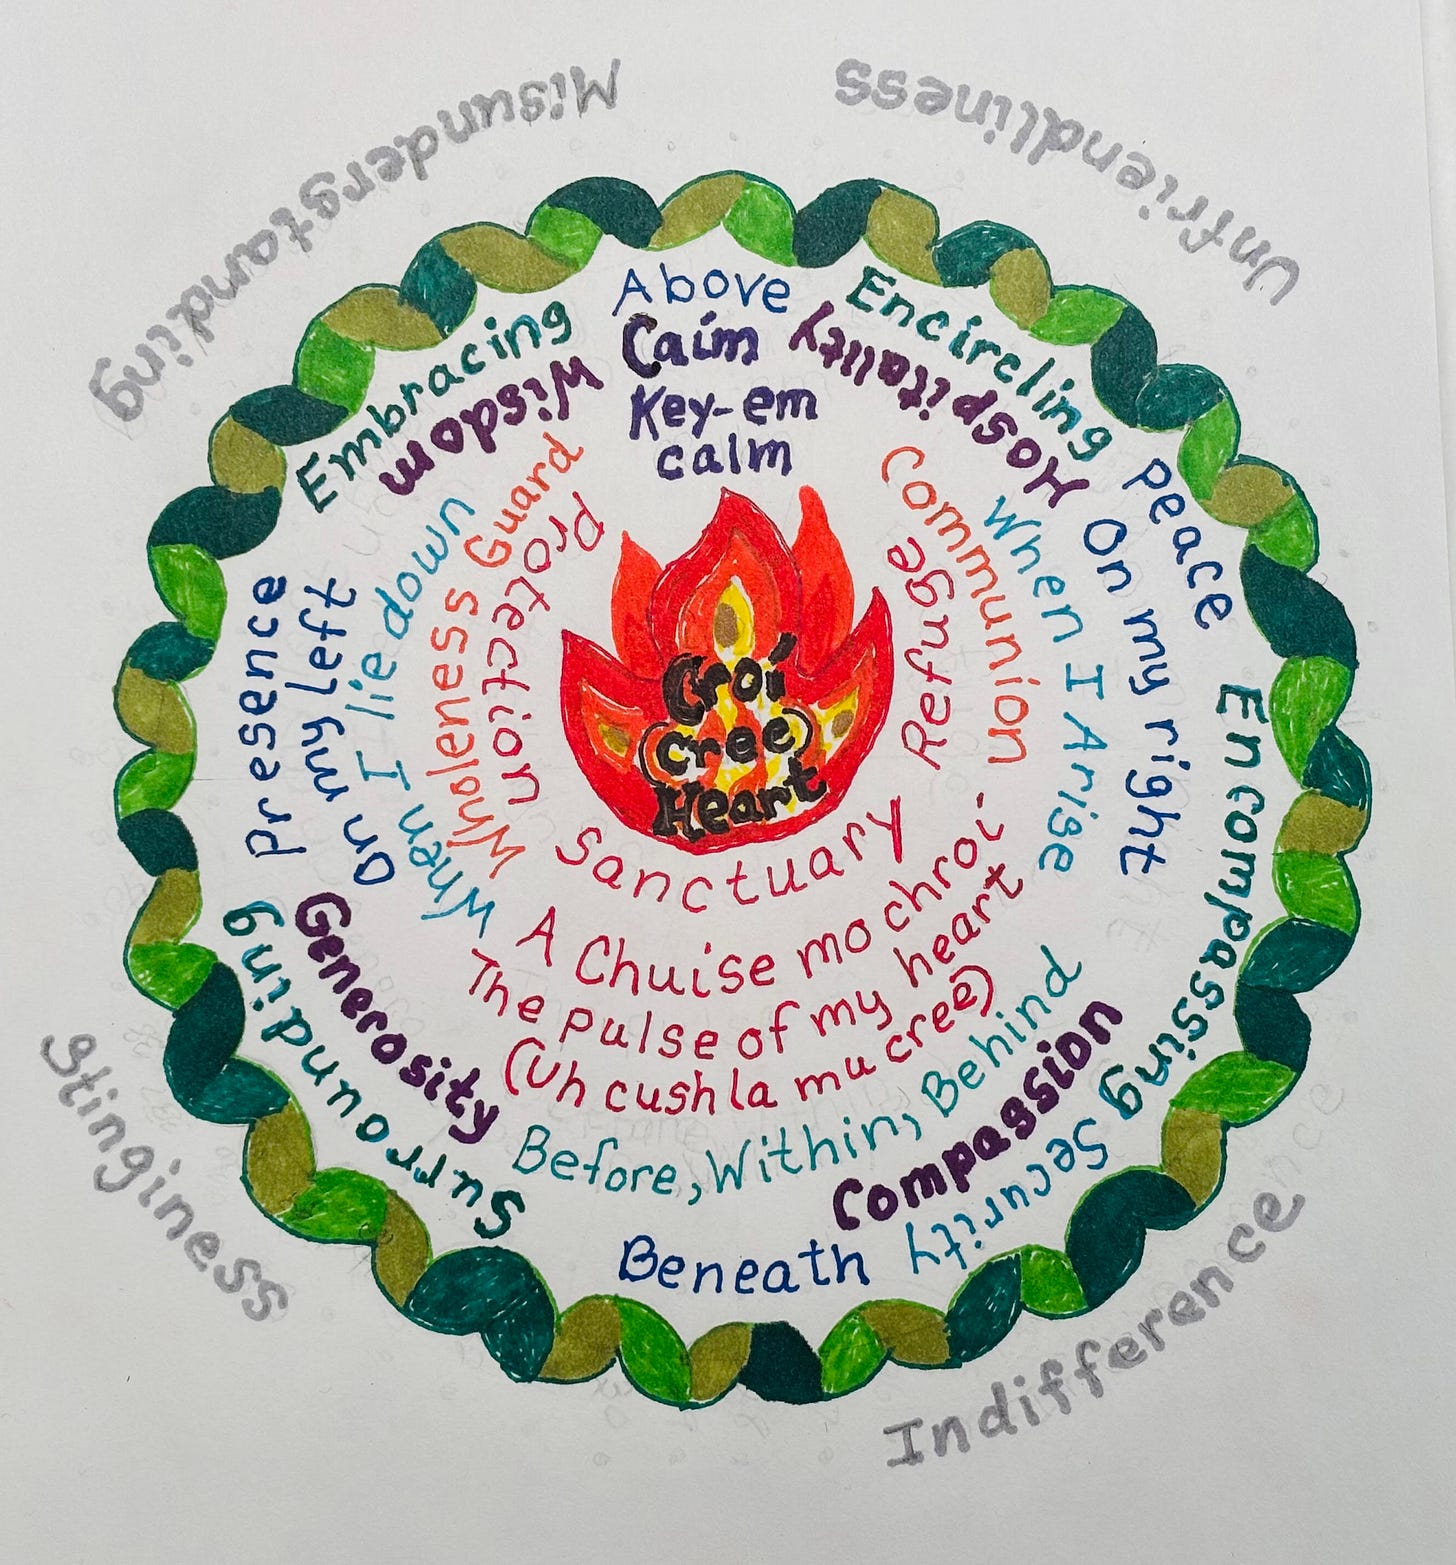 Misunderstanding
Unfriendliness
Above
Caím
Key-em
calm
Embracing
Wisdom
Encircling
Hospitality
Peace
On my right
When I Arise
Communion
Refuge
Guard
Protection
Wholeness
When I lie down
On my left
Presence
Croí
(cree)
Heart
Sanctuary
A Chuise mo chroí
The pulse of my heart
(Uh cush la mu cree)
Before, Within, Behind
Generosity
Surrounding
Compassion
Encompassing
Security
Beneath
Stinginess
Indifference